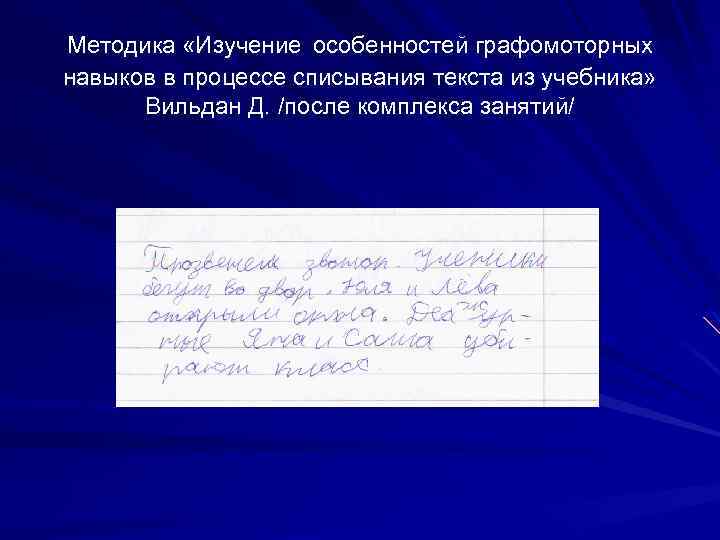 Методика «Изучение особенностей графомоторных
навыков в процессе списывания текста из учебника»
Вильдан Д. /после комплекса занятий/
Прозвенел звонок. Ученики
бегут во двор. Юля и Лёва
открыли окна. Деажур-
ные Яна и Саша уби-
рают класс.